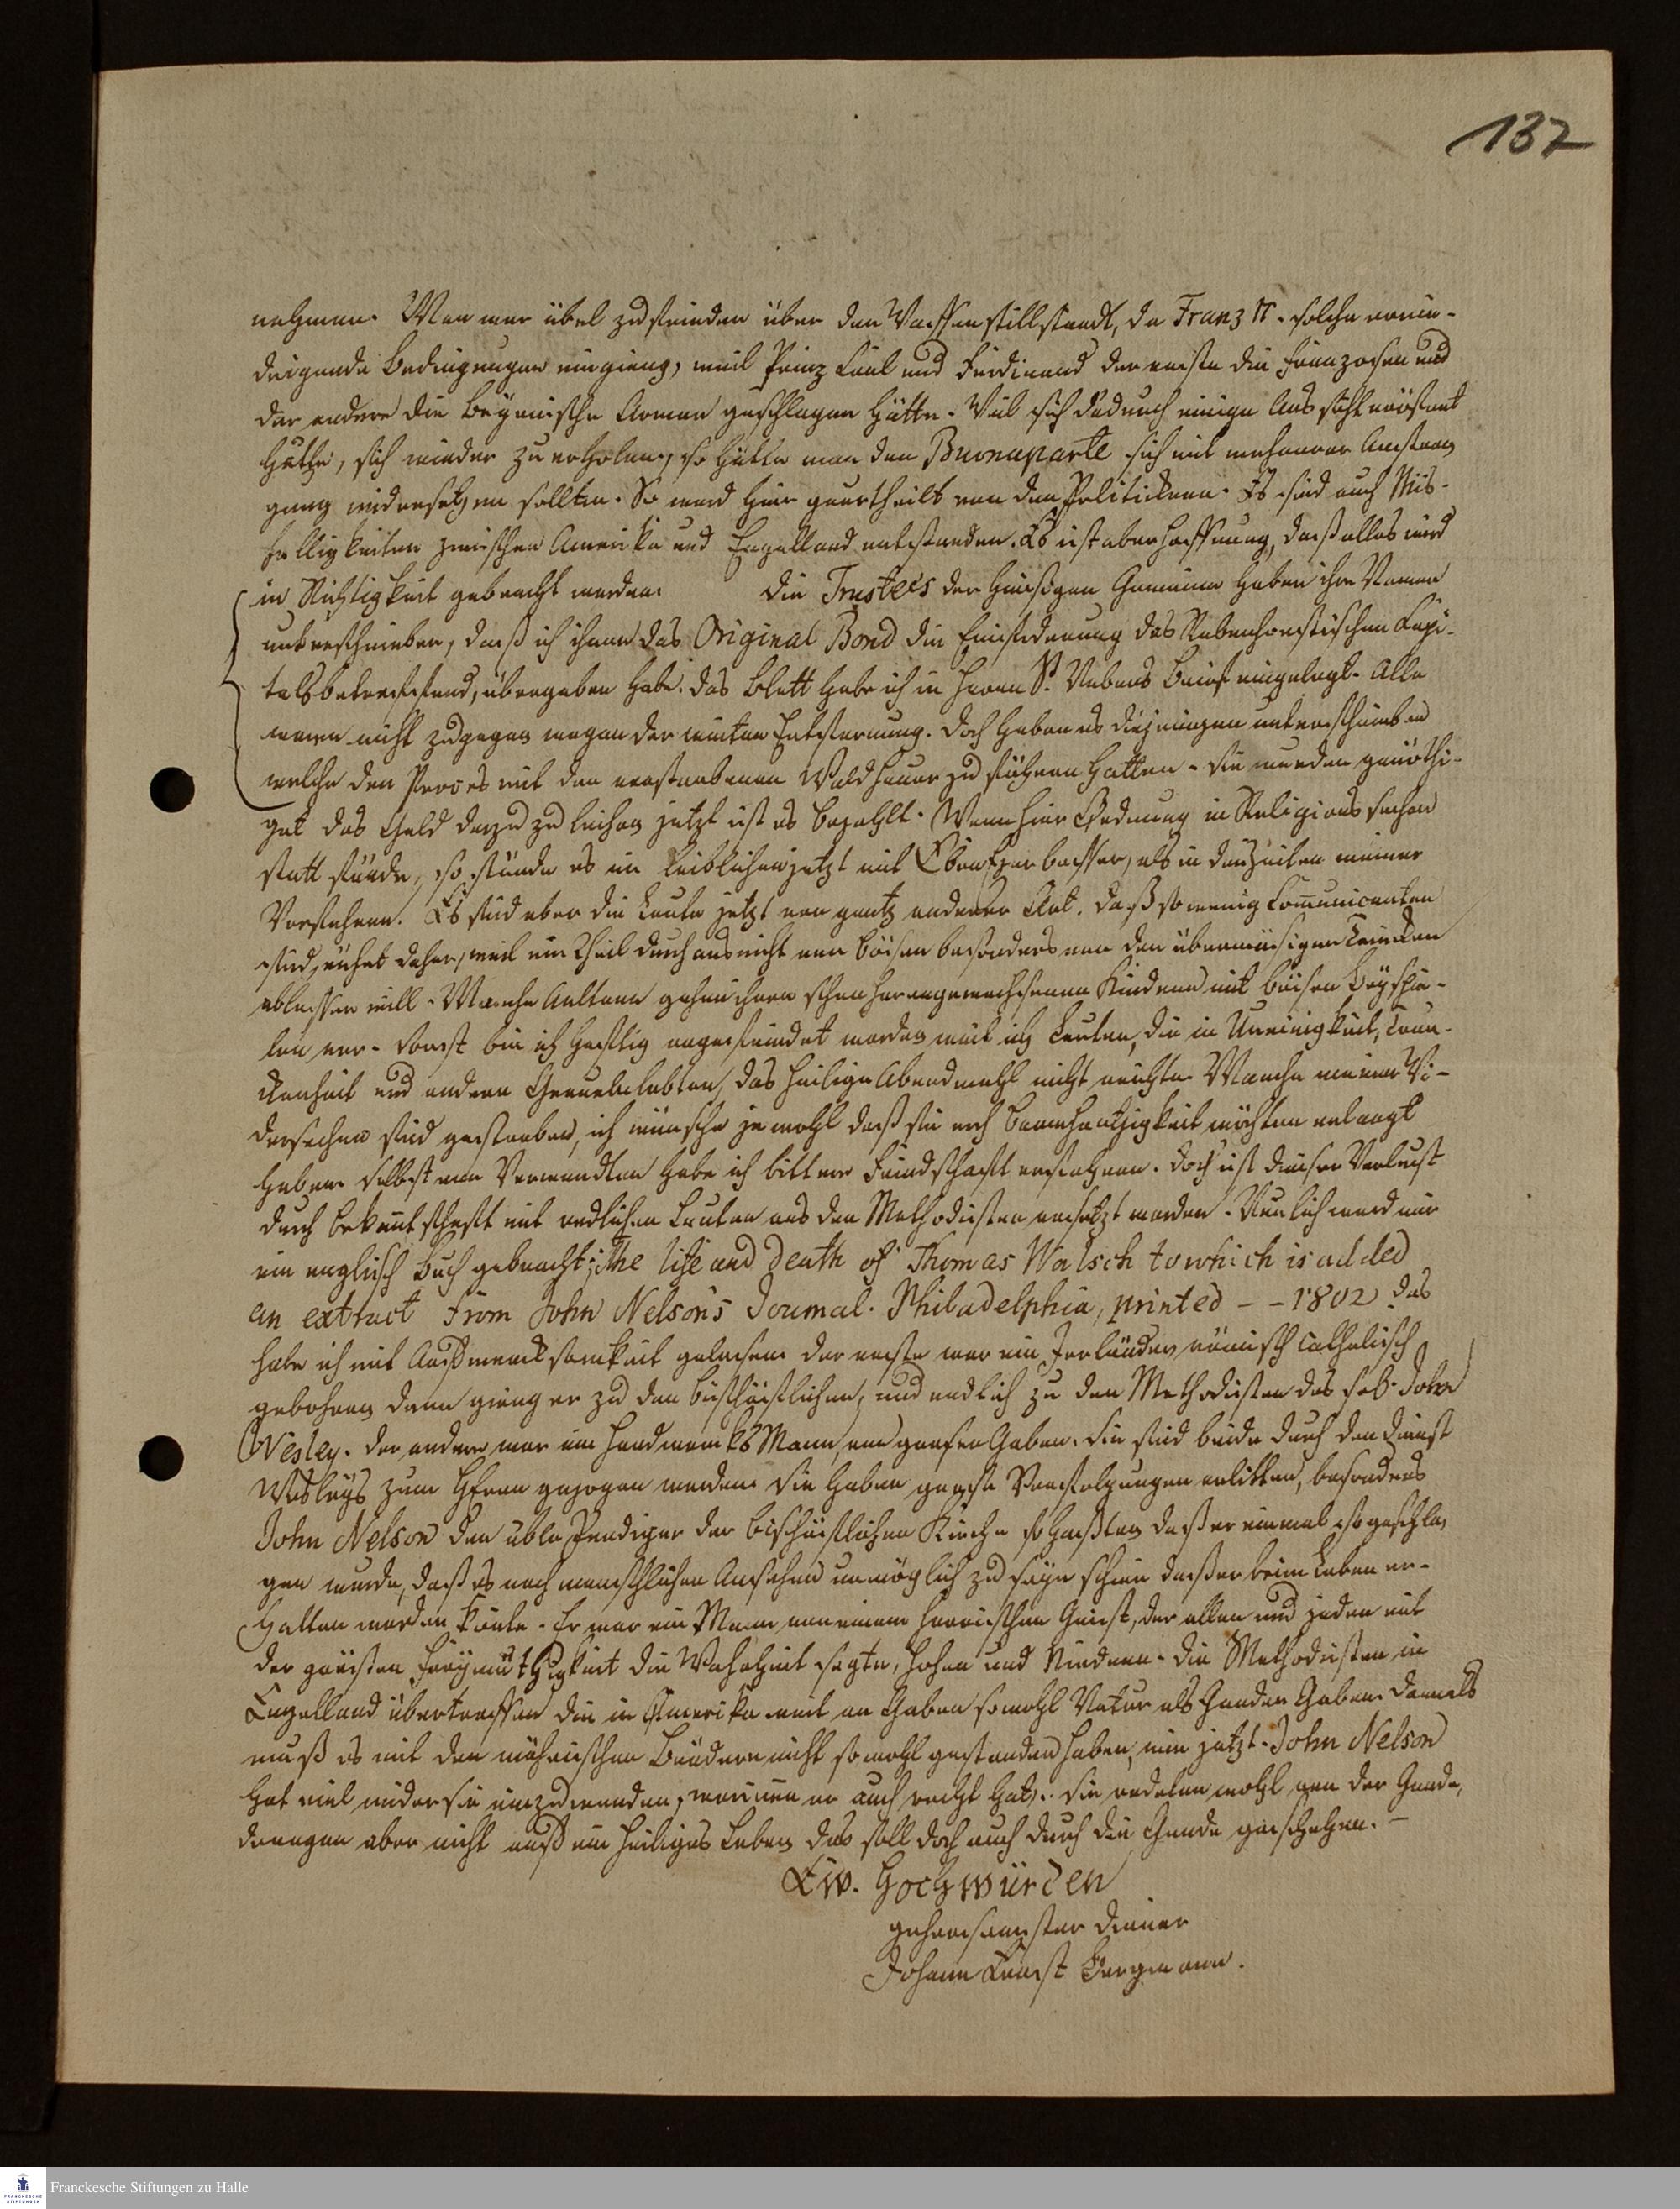 132
nehmen. Man war übel zufrieden über den Waffenstillstandt, da Franz II. solche ernie-
drigende Bedingungen eingieng, weil Prinz Carl und Ferdinand der erste die Franzosen und
der andere die Bayrische Armee geschlagen hätte. Weil sich dadurch einige Aussicht eröfnet
hätte, sich wieder zu erholen, so hätte man den Buonaparte sich mit mehrerer Anstren
gung widersetzen sollten. So wird hier geurtheilt von den Politickern. Es sind auch Mis-
helligkeiten zwischen Amerika und Engelland entstanden. Es ist aber Hoffnung, daß alles wird
in Richtigkeit gebracht werden. Die Trustees der hiesigen Gemeine haben ihre Namen
unterschrieben, daß ich ihnen das Original Bond die Einforderung des Rabenhorstischen Kapi-
tals betreffend, übergeben habe. Das Blatt habe ich in Herrn P. Nebens Brief eingelegt. Alle
waren nicht zugegen wegen der weiten Entfernung. Doch haben es diejenigen unterschrieben
welche den Proces mit den verstorbenen Waldhauer zu führen hatten. Sie wurden genöthi-
get das Geld dazu zu leihen jetzt ist es bezahlt. Wenn hier Ordnung in Religions sachen
statt fände, so stünde es im leiblichen jetzt mit Ebenezer besser, als in den Zeiten meiner
Vorfahren. Es sind aber die Leute jetzt von gantz anderer Art. Daß so wenig Communicanten
sind, rühret daher, weil ein Theil durchaus nicht vom bösen besonders von den übermäsigen Trincken
ablassen will. Manche Aeltern gehen ihren schon herangewachsenen Kindern mit bösen Beyspie-
len vor. Sonst bin ich heftig angefeindet worden weil ich Leuten, die in Uneinigkeit, Trun-
ckenheit und andern Greueln lebten, das heilige Abendmahl nicht reichte. Manche meiner Wi-
dersacher sind gestorben, ich wünsche ja wohl daß sie noch Barmhertzigkeit möchten erlangt
haben. Selbst von Verwandten habe ich bittere Feindschaft erfahren. Doch ist dieser Verlust
durch Bekantschaft mit redlichen Leuten aus den Methodisten ersetzt worden. Neulich ward mir
ein englisch Buch gebracht; the life and death of Thomas Walsch to which is added
an extract from John Nelson's Journal. Philadelphia, printed - - 1802 das
habe ich mit Auffmercksamkeit gelesen. Der erste war ein Irrländer, römisch catholisch
gebohren, dann gieng er zu den bischöflichen, und endlich zu den Methodisten des sel. John
Wesley. Der andere war ein Handwercks Mann, von grosen Gaben. Sie sind beide durch den Dienst
Wesleys zum HErrn gezogen worden. Sie haben grose Verfolgungen erlitten, besonders
John Nelson den üble Prediger der bischöflichen Kirche so haßten daß er einmal so geschla
gen wurde, daß es nach menschlichen Ansehen unmöglich zu seyn schien daß er beim Leben er-
halten werden konte. Er war ein Mann von einem heroischen Geist, der allen und jeden mit
der grösten Freymüthigkeit die Wahrheit sagte, Hohen und Niedern. Die Methodisten in
Engelland übertreffen die in Amerika weit an Gaben sowohl Natur als Gnaden Gaben. Damals
muß es mit den mährischen Brüdern nicht so wohl gestanden haben, wie jetzt. John Nelson
hat viel wider sie einzuwenden, worinnen er auch recht hat. Sie redeten wohl von der Gnade,
drangen aber nicht auff ein heiliges Leben das soll doch auch durch die Gnade geschehen. -
Ew. Hochwürden
gehorsamster Diener
Johann Ernst Bergmann.
Franckesche Stiftungen zu Halle